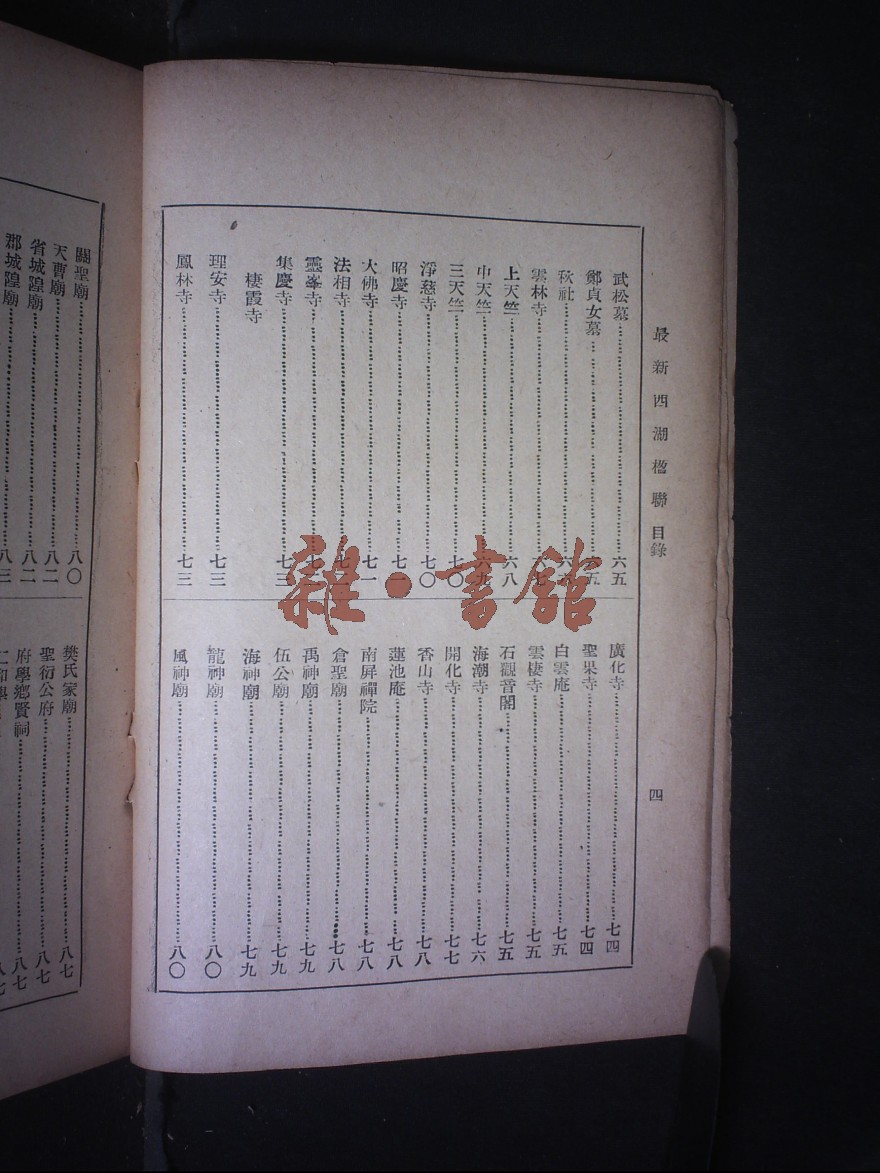 最新西湖楹聯目錄
四
武松墓……六五
鄭貞女墓……六五
秋社……六六
雲林寺……六七
上天竺……六八
中天竺……六九
三天竺……七〇
淨慈寺……七〇
昭慶寺……七一
大佛寺……七一
法相寺……七二
靈峯寺……七二
集慶寺……七三
棲霞寺
理安寺……七三
鳳林寺……七三
廣化寺……七四
聖果寺……七四
白雲庵……七五
雲棲寺……七五
石觀音閣……七五
海潮寺……七六
開化寺……七七
香山寺……七八
蓮池庵……七八
南屏禪院……七八
倉聖廟……七八
禹神廟……七九
伍公廟……七九
海神廟……七九
龍神廟……八〇
風神廟……八〇
關聖廟……八〇
天曹廟……八二
省城隍廟……八二
郡城隍廟……八三
樊氏家廟……八七
聖衍公府……八七
府學鄉賢祠……八七
雜·書館